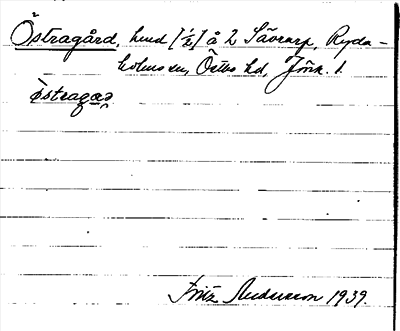 Östragård, hmd [1/2] å 2 Sävrarp, Ryda-
holms sn, Östbo hd, Jönk. l.
östragaɹə
Fritz Anderson 1939.